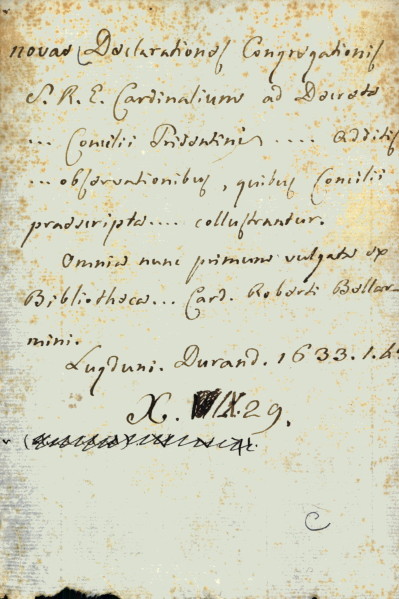 novas Declarationes Congregationis
S. R. E. Cardinalium ad Decreta
... Concilii Tridentini .... additis
... observationibus, quibus Concilii
praescripta .... collustrantur.
Omnia nunc primum vulgata ex
Bibliotheca ... Card. Roberti Bellar-
mini.
Lugduni. Durand. 1633. 1. 4
X. IX. 29.
C